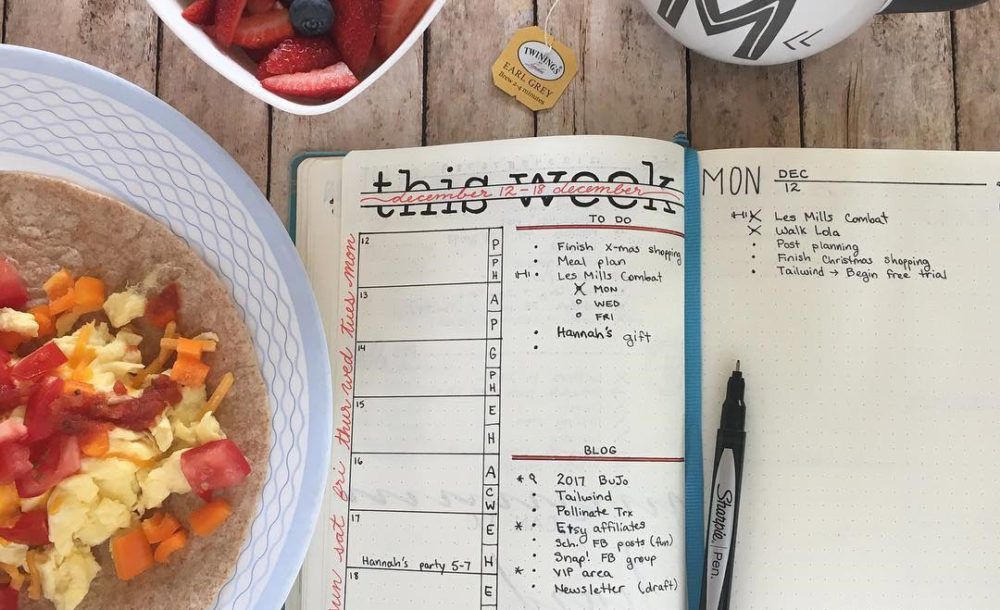 TWININGS
London
EARL GREY
Brew 2-4 minutes
M
this week
december 12-18 december
mon
tues
wed
thur
fri
sat
12
13
14
15
16
17
Hannah's party 5-7
18
P
PH
A
P
G
PH
E
H
A
CW
E
H
E
TO DO
• Finish X-mas shopping
• Meal plan
• Les Mills Combat
X MON
o WED
o FRI
• Hannah's gift
•
BLOG
* • 2017 BuJo
• Tailwind
• Pollinate Trx
* • Etsy affiliates
• Sch. FB posts (fun)
• Snap! FB group
* • VIP area
• Newsletter (draft)
MON DEC 12
X Les Mills Combat
X Walk Lola
• Post planning
• Finish Christmas shopping
• Tailwind → Begin free trial
Sharpie. | Pen.